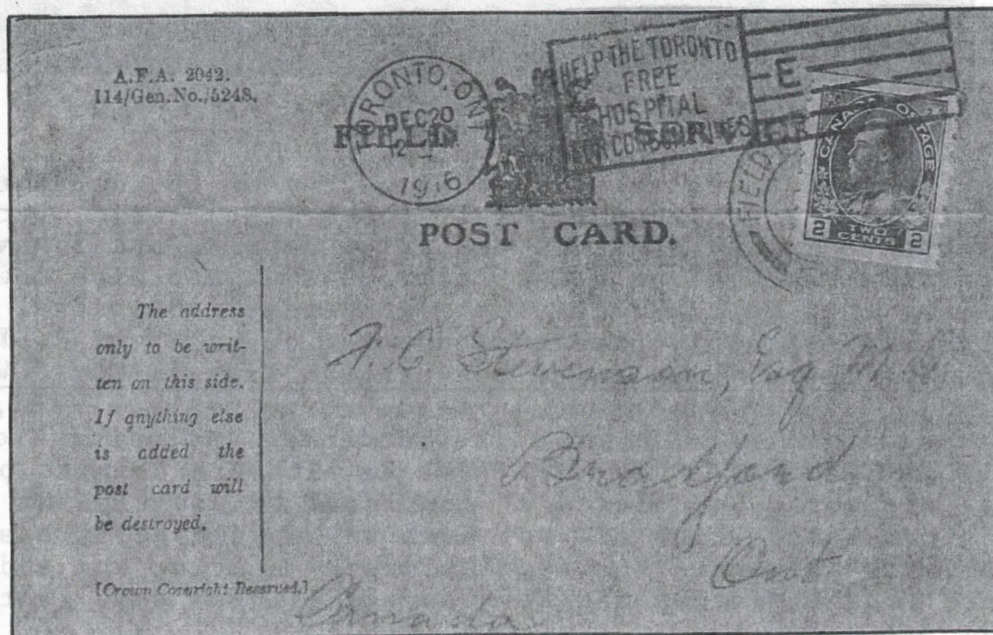 A.F.A. 2042.
114/Gen.No./5248.
TORONTO, ONT
DEC 20
1916
HELP THE TORONTO
FREE
HOSPITAL
FOR CONSUMPTIVES
E
FIELD SERVICE
FIELD
CANADA POSTAGE
2 TWO CENTS 2
POST CARD.
The address
only to be writ-
ten on this side.
If anything else
is added the
post card will
be destroyed.
[Crown Copyright Reserved.]
Stevenson, Esq
Ont
Canada